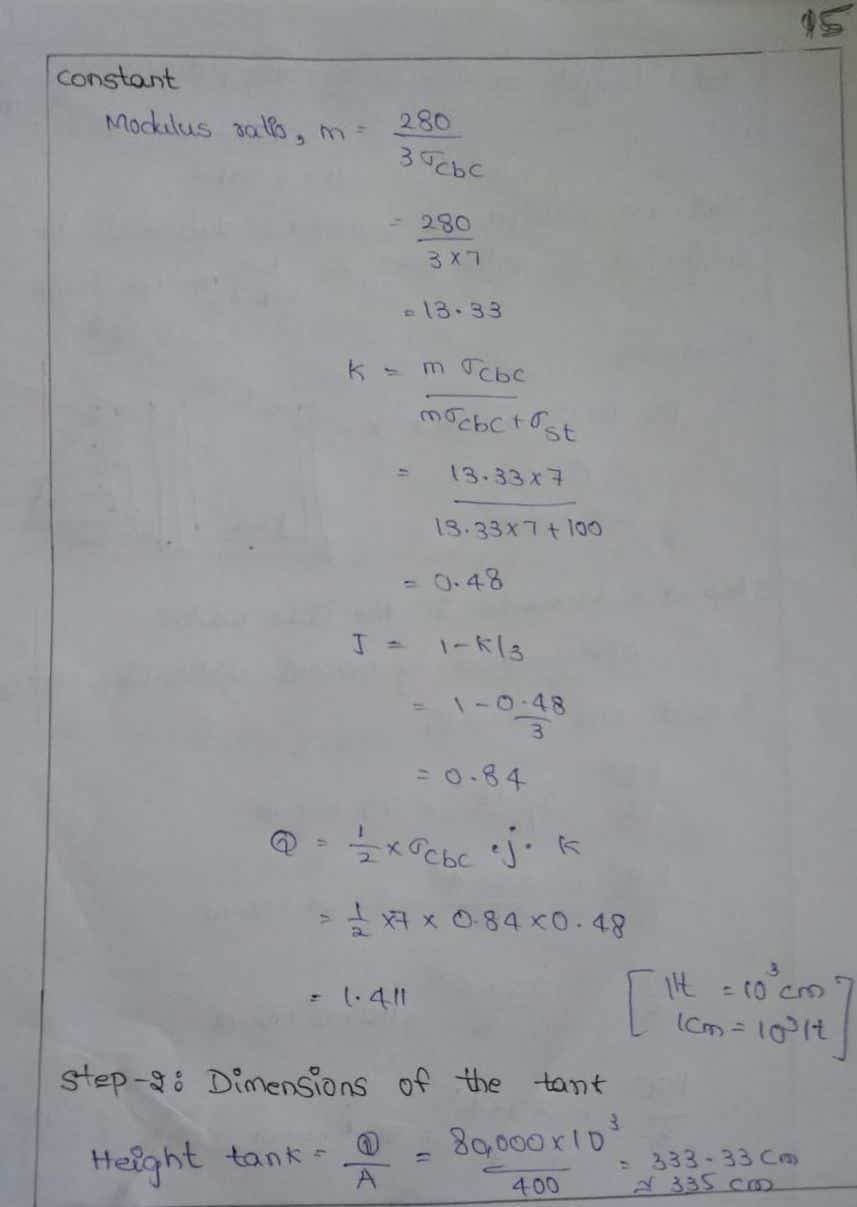 15
constant
Modulus ratio, m = 280 / 3σcbc
= 280 / 3×7
= 13.33
K = m σcbc / mσcbc + σst
= 13.33×7 / 13.33×7+100
= 0.48
J = 1-K/3
= 1-0.48/3
= 0.84
Q = 1/2 × σcbc . j . K
= 1/2 ×7 × 0.84 ×0.48
= 1.411
[1lt = 10³ cm
1cm = 10³ lt]
Step-2: Dimensions of the tant
Height tank = Q/A = 80,000×10³ / 400 = 333.33 cm
≈ 335 cm